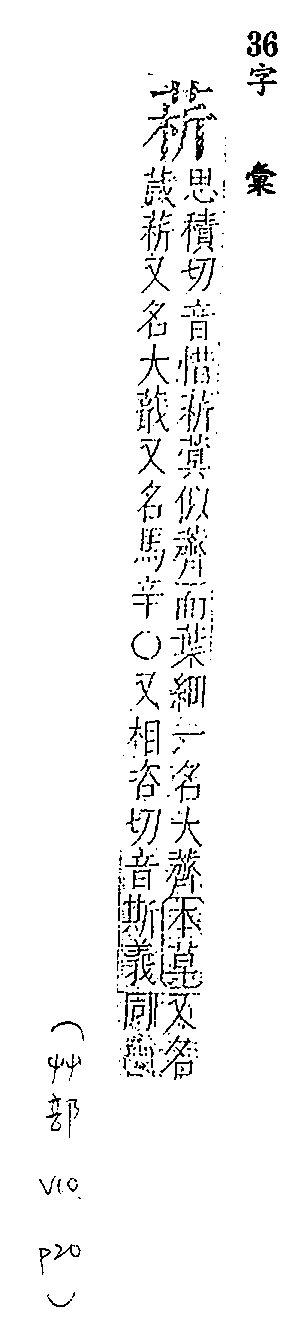 36字 彙
菥 思積切音惜菥蓂似薺而葉細一名大薺本草又名
蔑菥又名大蕺又名馬辛○又相咨切音斯義同
(艸部 V10. P20)